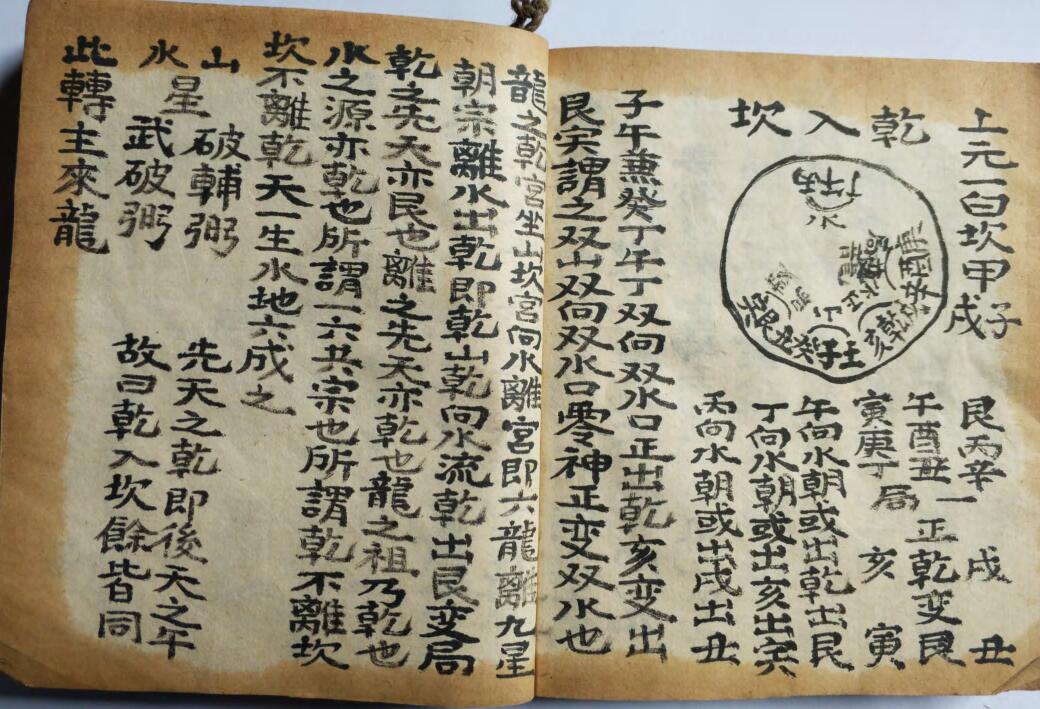 上元一白坎甲子
戌
乾入坎
艮丙辛
午酉丑一
寅庚丁局
戌丑
正乾变艮
亥寅
午向水朝或出乾出艮
丁向水朝或出亥出寅
丙向水朝或出戌出丑
水
乾
亥
壬子癸
子午兼癸丁午丁双向双水口正出乾亥变出
艮寅謂之双山双向双水口零神正变双水也
龍之乾宮坐山坎宮向水離宮即六龍離九星
朝宗離水出乾即乾山乾向水流乾出艮变局
乾之先天亦艮也離之先天亦乾也龍之祖乃乾也
水之源亦乾也所謂一六共宗也所謂乾不離坎
坎不離乾天一生水地六成之
山
水
星
破輔弼
武破弼
先天之乾即後天之午
故曰乾入坎餘皆同
此轉主來龍